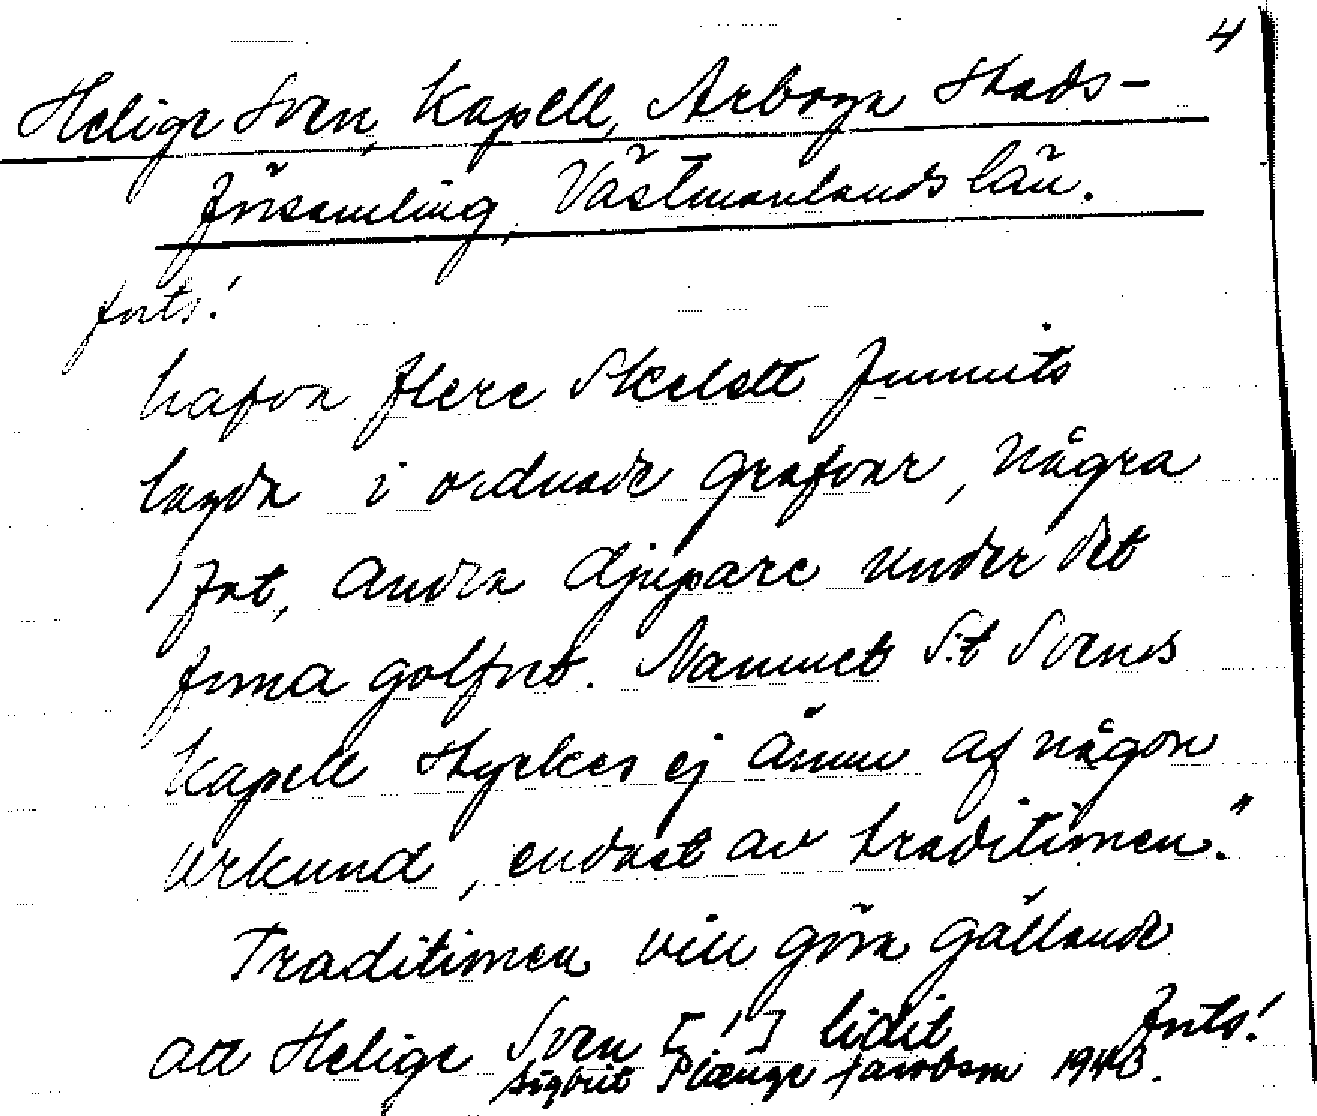 4
Helige Sven, Kapell, Arboga Stads-
församling, Västmanlands län.
forts!
hafva flere Skelett funnits
lagda i ordnade grafvar, några
/fot, andra djupare under det
forna golfvet. Namnet S:t Svens
Kapell styrkes ej ännu af någon
urkund, endast av traditionen."
Traditionen vill göra gällande
att Helige Sven [!] lidit Forts!
Sigbrit Plænge Jacobson 1943.